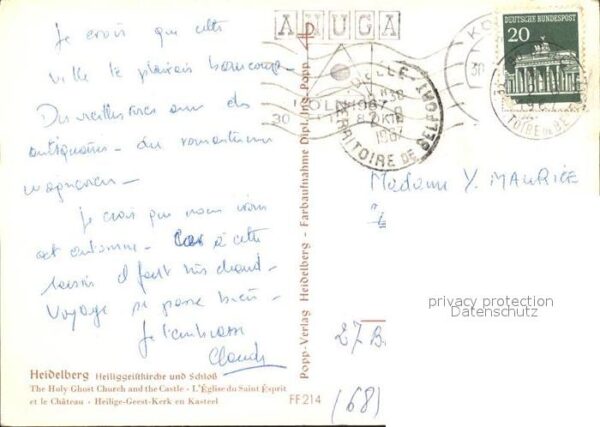 Je crois que cette
ville te plairait beaucoup -
Des vieilles rues avec des
antiquaires - du romantisme
wagnérien -
Je crois que nous irons
cet automne - Car à cette
saison il fait très chaud -
Voyage se passe bien -
Je t'embrasse
Claude
Heidelberg Heiliggeistkirche und Schloß
The Holy Ghost Church and the Castle - L'Église du Saint Ésprit
et le Château - Heilige-Geest-Kerk en Kasteel
FF 214
Popp-Verlag Heidelberg - Farbaufnahme Dipl. Ing. Popp
ANUGA
KÖLN 1967
30
DELLE
TERRITOIRE DE BELFORT
1967
20
DEUTSCHE BUNDESPOST
Madame Y. MAURICE
27 B
(68)
privacy protection
Datenschutz